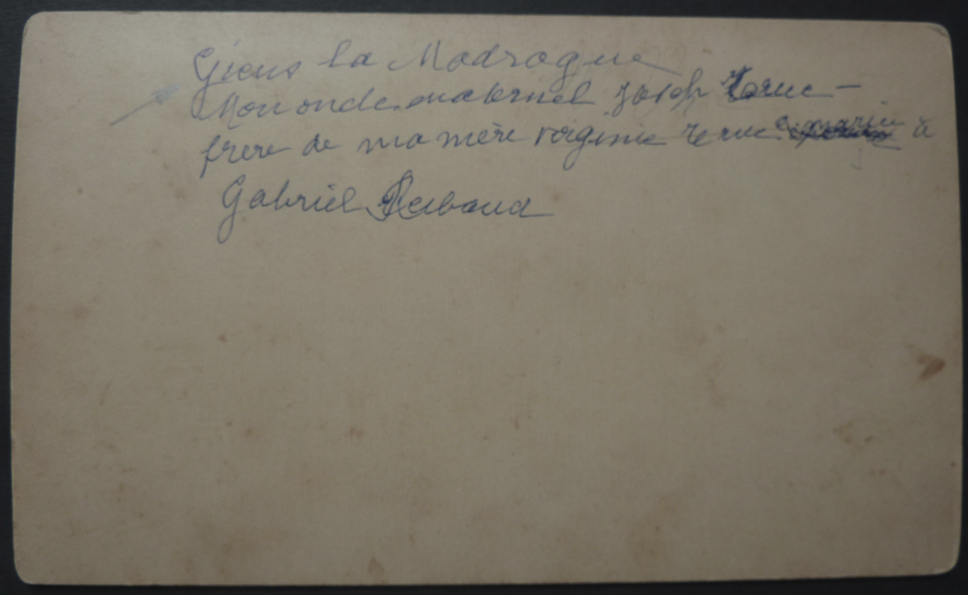 Giens la Madrague
Mon oncle maternel Joseph Teruc -
frère de ma mère virginie Teruc marié à
Gabriel Rebaud